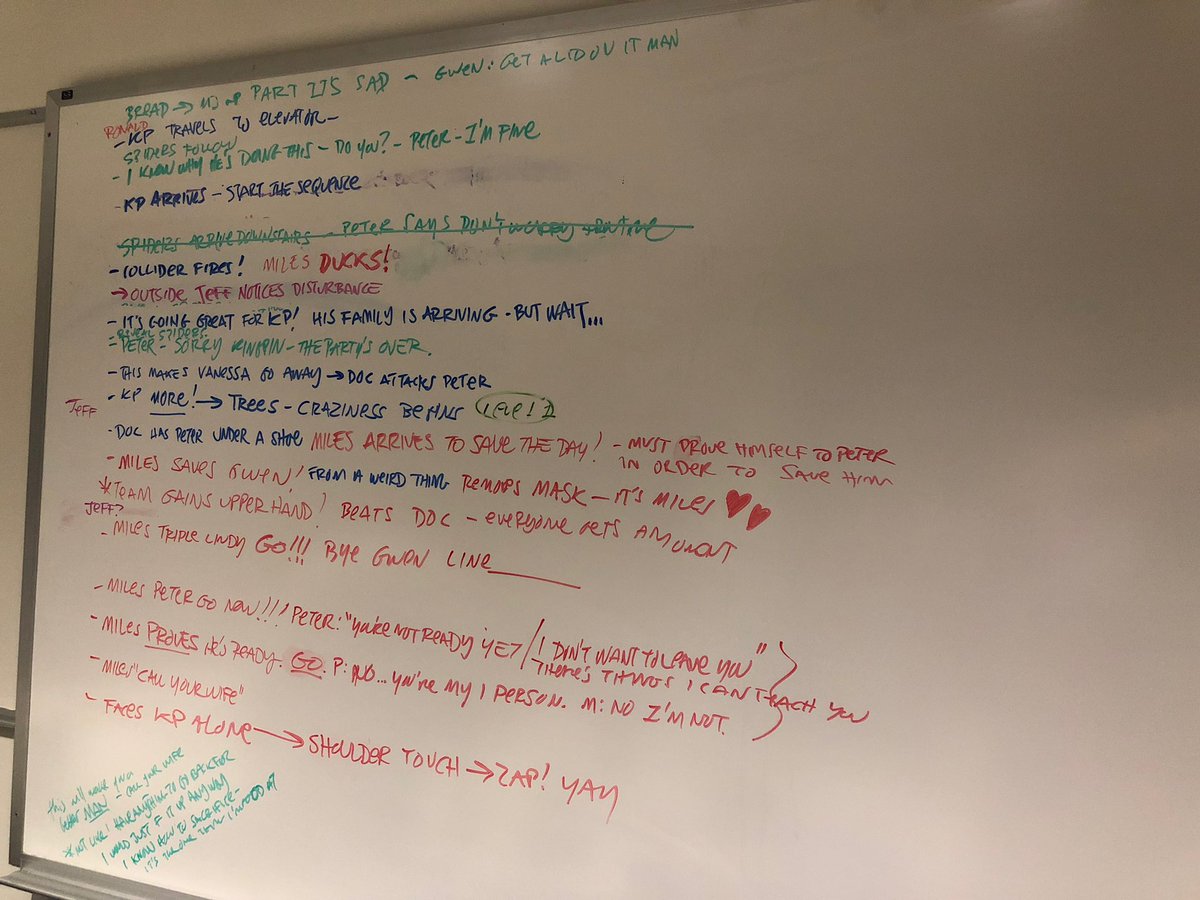 BREAD → MJ PART II'S SAD – GWEN: GET A LID ON IT MAN
RONALD
- KP TRAVELS TO ELEVATOR –
SPIDERS FOLLOW
- I KNOW WHY HE'S DOING THIS – DO YOU? – PETER – I'M FINE
- KP ARRIVES – START THE SEQUENCE
SPIDERS ARRIVE DOWNSTAIRS – PETER SAYS DON'T WORRY ROUTINE
- COLLIDER FIRES! MILES DUCKS!
→ OUTSIDE JEFF NOTICES DISTURBANCE
- IT'S GOING GREAT FOR KP! HIS FAMILY IS ARRIVING - BUT WAIT...
REVEAL SPIDERS
- PETER – SORRY KINGPIN – THE PARTY'S OVER.
- THIS MAKES VANESSA GO AWAY → DOC ATTACKS PETER
- KP MORE! → TREES – CRAZINESS BEGINS LEVEL 1
JEFF
- DOC HAS PETER UNDER A SHOE MILES ARRIVES TO SAVE THE DAY! - MUST PROVE HIMSELF TO PETER
IN ORDER TO SAVE HIM
- MILES SAVES GWEN! FROM A WEIRD THING REMOVES MASK – IT'S MILES ♥♥
* TEAM GAINS UPPER HAND! BEATS DOC – EVERYONE GETS A MOMENT
JEFF?
- MILES TRIPLE LINDY GO!!! BYE GWEN LINE ______
- MILES PETER GO NOW!!! PETER: "YOU'RE NOT READY YET / I DON'T WANT TO LEAVE YOU"
THERE'S THINGS I CAN TEACH YOU
- MILES PROVES HE'S READY. GO. P: NO... YOU'RE MY 1 PERSON. M: NO I'M NOT.
- MILES "CALL YOUR WIFE"
- FACES KP ALONE → SHOULDER TOUCH → ZAP! YAY
this will make you a
better MAN – CALL YOUR WIFE
* NOT LIKE I HAVE ANYTHING TO GO BACK FOR
I WOULD JUST F IT UP ANYWAY
I KNOW HOW TO SACRIFICE –
IT'S THE ONE THING I'M GOOD AT